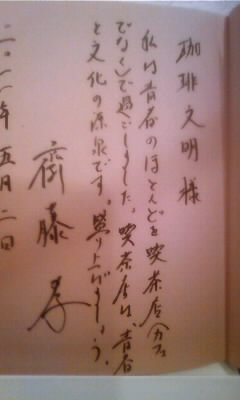 珈琲文明様
私は青春のほとんどを喫茶店(カフェ
でなく)で過ごしました。喫茶店は、青春
と文化の源泉です。盛り上げましょう。
齋藤孝
二〇一一年五月二日